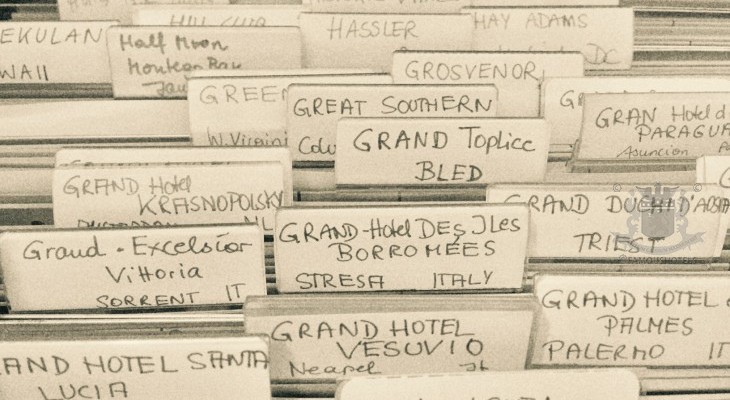 HASSLER
HAY ADAMS
DC
EKULAN
WAII
Half Moon
Montego Bay
GROSVENOR
GREE
W. Virgini
GREAT SOUTHERN
Colu
GRAND Toplice
BLED
GRAN Hotel d
PARAGUA
Asuncion
GRAND Hotel
KRASNOPOLSKY
NL
GRAND DUCHI D'AOSTA
TRIEST
Grand - Excelsior
Vittoria
SORRENT IT
GRAND-Hotel DES ILes
BORROMÉES
STRESA ITALY
GRAND HOTEL
PALMES
PALERMO IT
GRAND HOTEL
VESUVIO
Neapel It
AND HOTEL SANTA
LUCIA